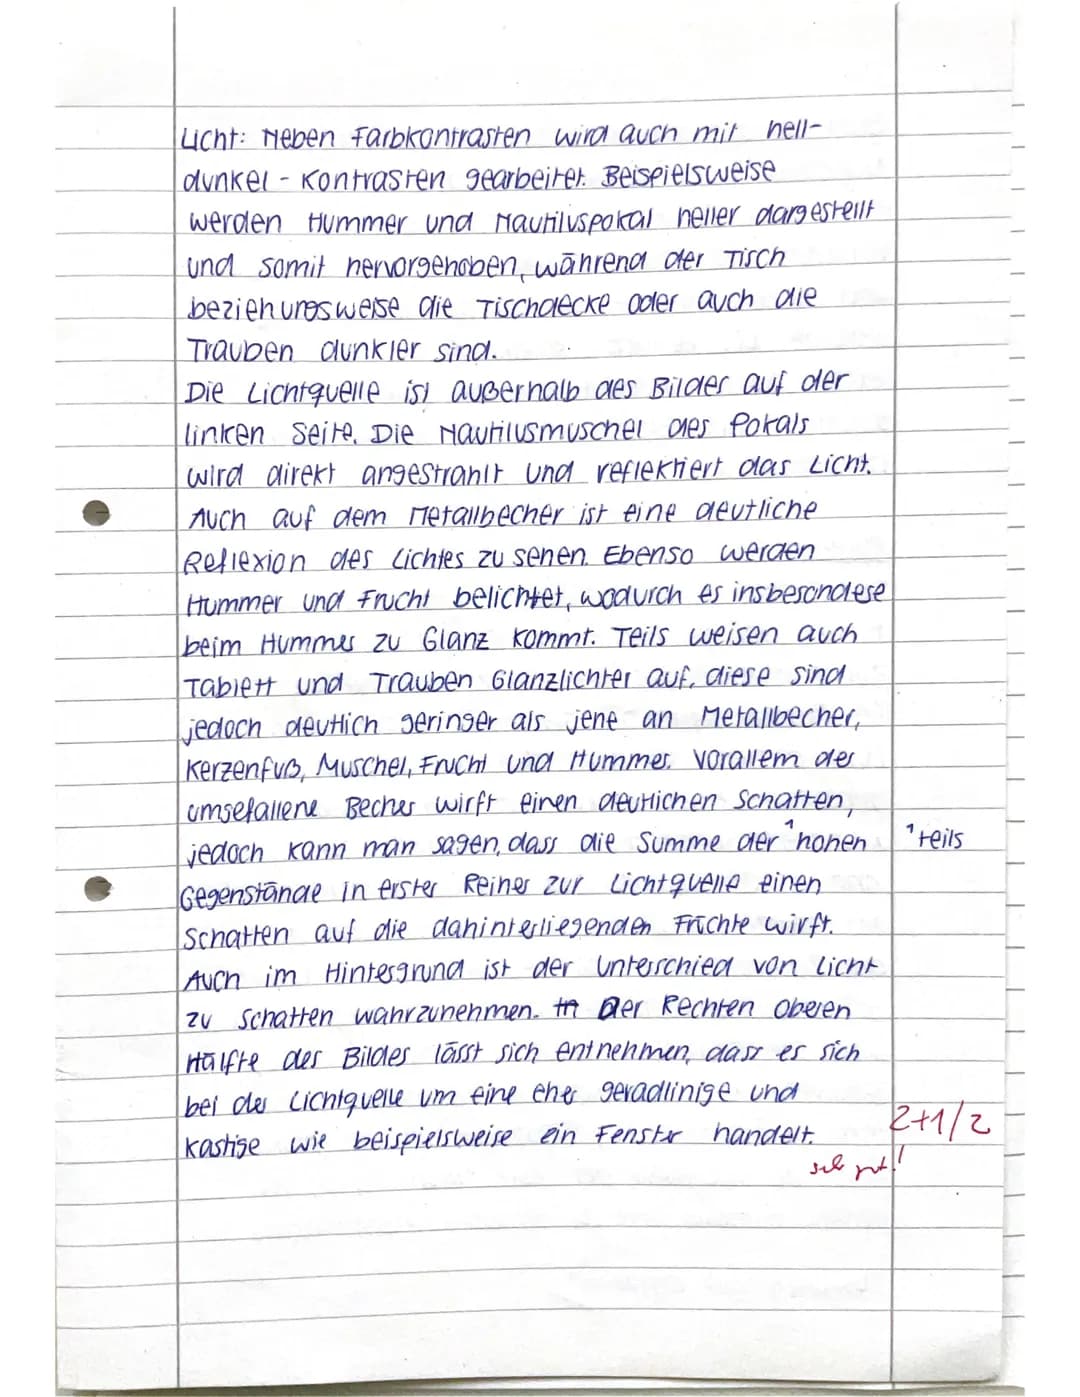 Licht: Neben Farbkontrasten wird auch mit hell-
dunkel - Kontrasten gearbeitet. Beispielsweise
werden Hummer und Nautiluspokal heller dargestellt
und somit hervorgehoben, während der Tisch
beziehungsweise die Tischdecke oder auch die
Trauben dunkler sind.
Die Lichtquelle ist außerhalb des Bildes auf der
linken Seite. Die Nautilusmuschel des Pokals
wird direkt angestrahlt und reflektiert das Licht.
Auch auf dem Metallbecher ist eine deutliche
Reflexion des Lichtes zu sehen. Ebenso werden
Hummer und Frucht belichtet, wodurch es insbesondere
beim Hummer zu Glanz kommt. Teils weisen auch
Tablett und Trauben Glanzlichter auf, diese sind
jedoch deutlich geringer als jene an Metallbecher,
Kerzenfuß, Muschel, Frucht und Hummer. Vorallem der
umgefallene Becher wirft einen deutlichen Schatten,
jedoch kann man sagen, dass die Summe der ¹hohen ¹teils
Gegenstände in erster Reiher zur Lichtquelle einen
Schatten auf die dahinterliegenden Früchte wirft.
Auch im Hintergrund ist der Unterschied von Licht
zu Schatten wahrzunehmen. In Der Rechten Oberen
Hälfte des Bildes lässt sich entnehmen, dass es sich
bei der Lichtquelle um eine eher geradlinige und
kastige wie beispielsweise ein Fenster handelt.
2+1/2
sehr gut!